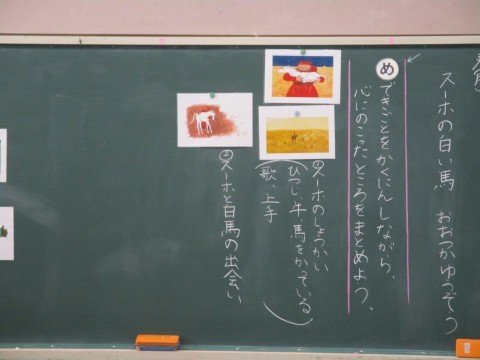 スーホの白い馬 おおつかゆうぞう
め
できごとをかくにんしながら、
心にのこったところをまとめよう。
①スーホのしょうかい
ひつじ、牛、馬をかっている
歌、上手
②スーホと白馬の出会い